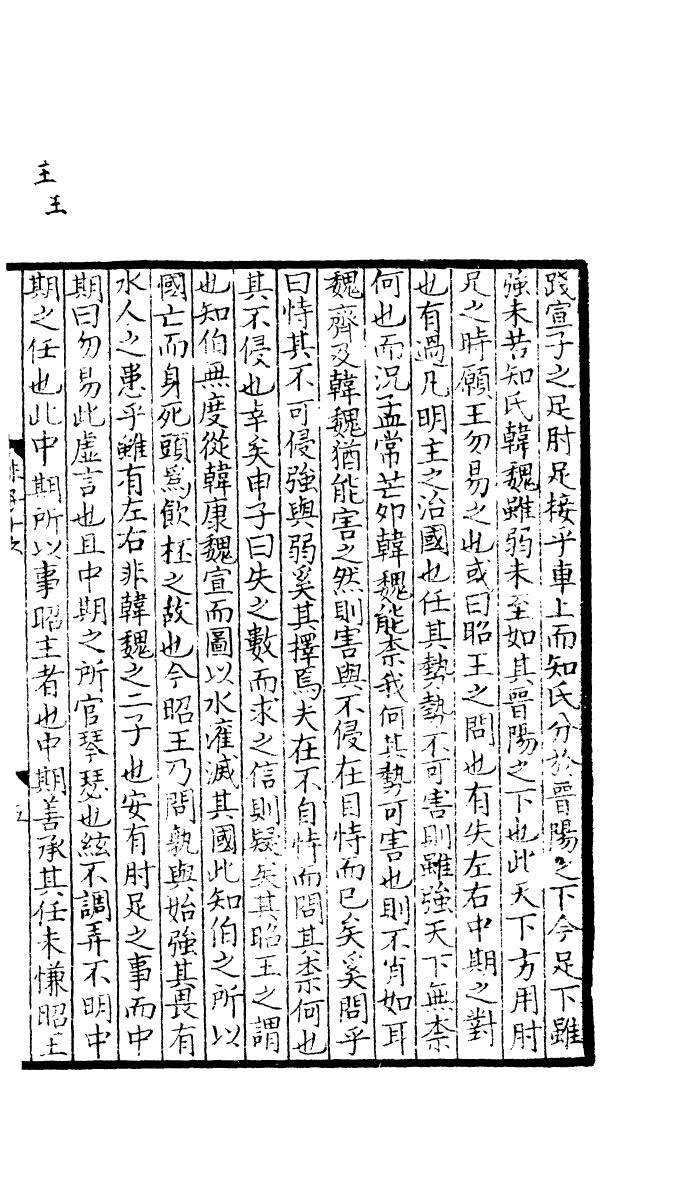 主
王
踐宣子之足肘足接乎車上而知氏分於晉陽之下今足下雖
強未若知氏韓魏雖弱未至如其晉陽之下也此天下方用肘
足之時願王勿易之也或曰昭王之問也有失左右中期之對
也有過凡明主之治國也任其勢勢不可害則雖強天下無柰
何也而況孟常芒卯韓魏能柰我何其勢可害也則不肖如耳
魏齊及韓魏猶能害之然則害與不侵在自恃而已矣奚問乎
曰恃其不可侵強與弱奚其擇焉夫在不自恃而問其柰何也
其不侵也幸矣申子曰失之數而求之信則疑矣其昭王之謂
也知伯無度從韓康魏宣而圖以水灌滅其國此知伯之所以
國亡而身死頭爲飲杯之故也今昭王乃問孰與始強其畏有
水人之患乎雖有左右非韓魏之二子也安有肘足之事而中
期曰勿易此虛言也且中期之所官琴瑟也絃不調弄不明中
期之任也此中期所以事昭主者也中期善承其任未慊昭王
五